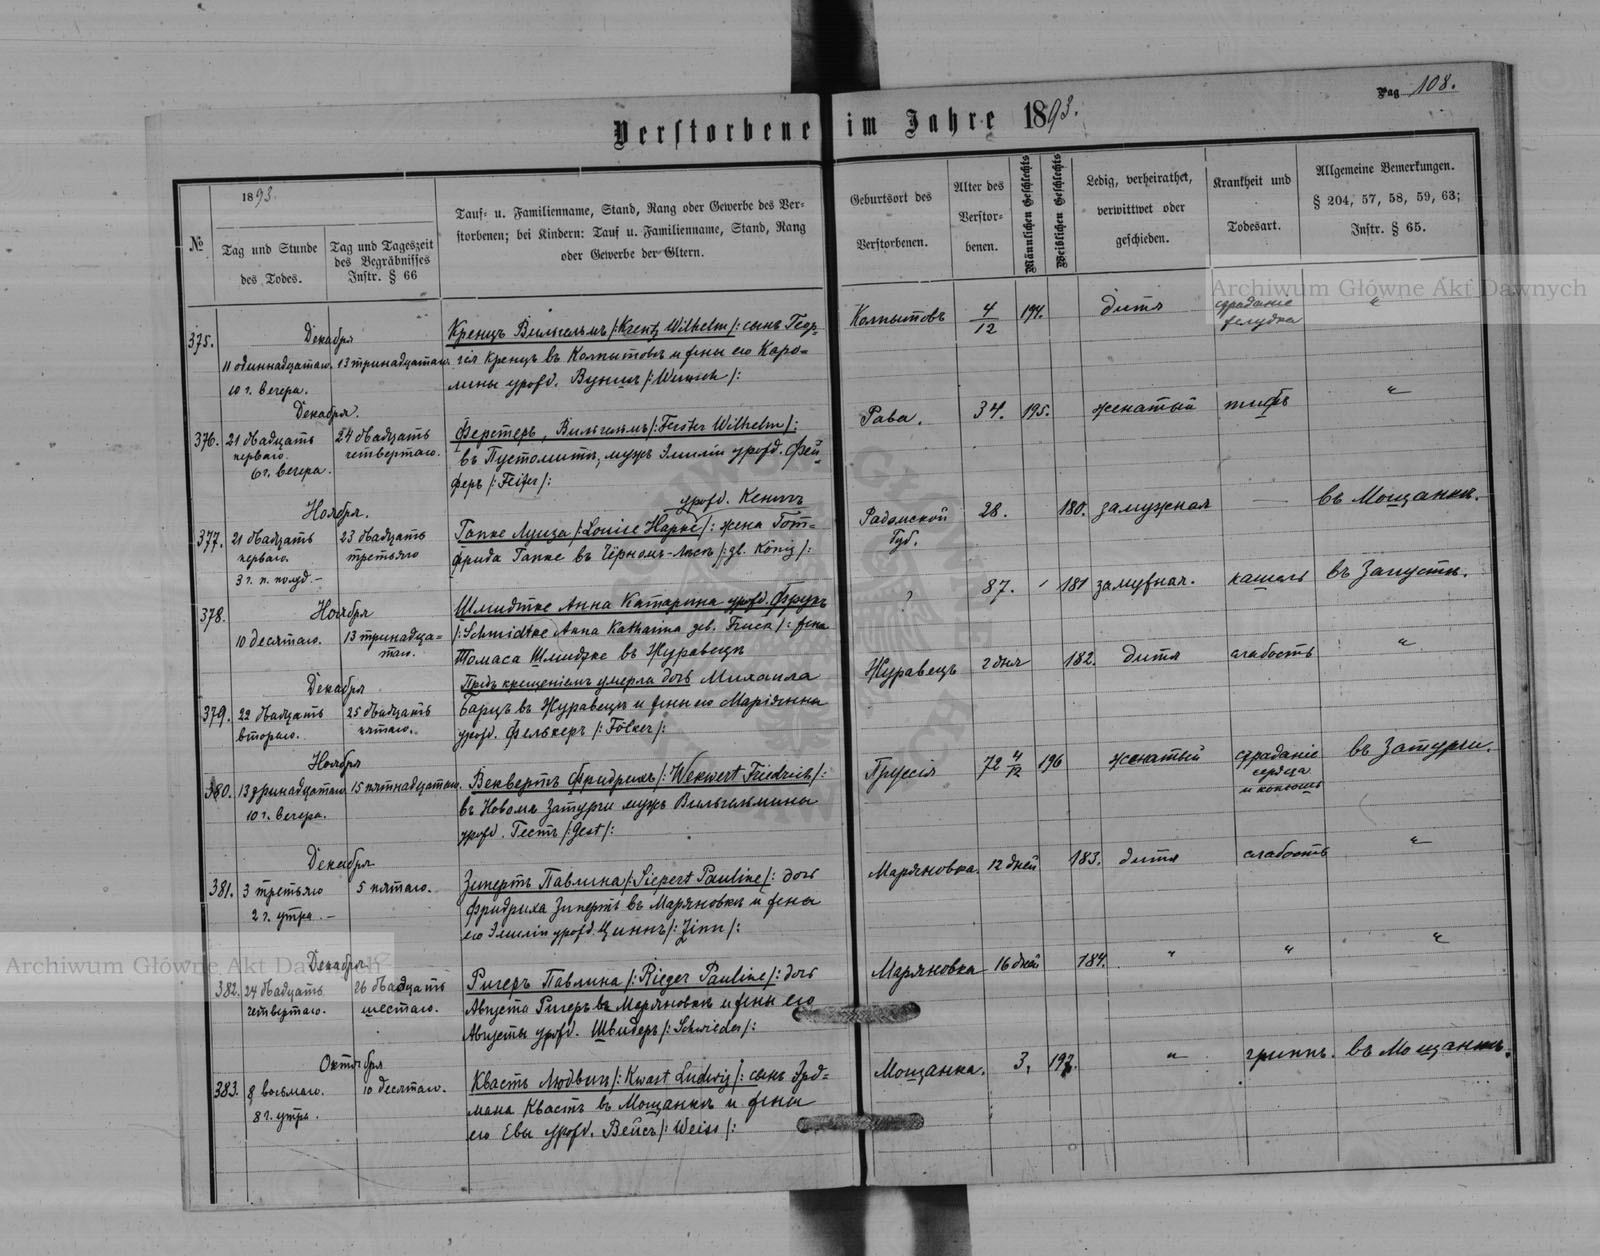 Pag 108.
Verstorbene im Jahre 1893.
№
1893.
Tag und Stunde
des Todes.
Tag und Tageszeit
des Begräbnisses
Instr. § 66
Tauf- u. Familienname, Stand, Rang oder Gewerbe des Ver-
storbenen; bei Kindern: Tauf u. Familienname, Stand, Rang
oder Gewerbe der Eltern.
Geburtsort des
Verstorbenen.
Alter des
Verstor-
benen.
Männlichen Geschlechts
Weiblichen Geschlechts
Ledig, verheirathet,
verwittwet oder
geschieden.
Krankheit und
Todesart.
Allgemeine Bemerkungen.
§ 204, 57, 58, 59, 63;
Instr. § 65.
Archiwum Główne Akt Dawnych
375.
Декабря
11 одиннадцатаго. 13 тринадцатаго.
10 г. вечера.
Кренцъ Вильгельмъ /: Krentz Wilhelm /: сынъ Геор-
гія Кренцъ въ Колпытовъ и жены его Каро-
лины урожд. Вуншъ /: Wunsch /:
Колпытовъ
4/12
194.
дитя
страданіе
желудка
"
376.
Декабря.
21 двадцать
перваго.
6 г. вечера.
24 двадцать
четвертаго.
Ферстеръ, Вильгельмъ /: Ferster Wilhelm /:
въ Пустомитъ, мужъ Эмиліи урожд. Фей
феръ /: Feifer /:
Рава.
34.
195.
женатый
тифъ
"
377.
Ноября.
21 двадцать
перваго.
3 г. п. полуд. –
23 двадцать
третьяго
урожд. Кенигъ
Гапке Луиза /: Louise Hapke /: жена Гот-
фрида Гапке въ Чёрномъ-Лѣсѣ /: gb. König /:
Радомской
Губ.
28.
180.
замужная
—
въ Мощанкѣ.
378.
Ноября
10 десятаго.
13 тринадца-
таго.
Шмидтке Анна Катарина урожд. Фрукъ
/: Schmidtke Anna Katharina geb. Fruck /: жена
Томаса Шмидтке въ Журавецъ
?
87.
181
замужная.
кашель
въ Запустъ.
379.
Декабря
22 двадцать
втораго.
25 двадцать
пятаго.
Предъ крещеніемъ умерла дочь Михаила
Барцъ въ Журавецъ и жены его Маріянны
урожд. Фелькеръ /: Fölker /:
Журавецъ
2 дня
182.
дитя
слабость
"
380.
Ноября
13 тринадцатаго 15 пятнадцатаго.
10 г. вечера.
Веквертъ Фридрихъ /: Wekwert Friedrich /:
въ Новомъ Затурги мужъ Вильгельмины
урожд. Гестъ /: Gest /:
Пруссія
72 4/12
196
женатый
страданіе
сердца
въ Затурги.
381.
Декабря
3 третьяго
2 г. утра. –
5 пятаго.
Зипертъ Павлина /: Siepert Pauline /: дочь
Фридриха Зипертъ въ Маряновкъ и жены
его Эмиліи урожд. Циннъ /: Zinn /:
Маряновка.
12 дней
183.
дитя
слабость
"
Archiwum Główne Akt Dawnych
382.
Декабря
24 двадцать
четвертаго.
26 двадцать
шестаго.
Ригеръ Павлина /: Rieger Pauline /: дочь
Августа Ригеръ въ Маряновкъ и жены его
Августы урожд. Швидеръ /: Schwieder /:
Маряновка
16 дней
184.
"
"
"
383.
Октября
8 восьмаго.
8 г. утра.
10 десятаго.
Квастъ Людвигъ /: Kwast Ludwig /: сынъ Эрд-
мана Квастъ въ Мощанкъ и жены
его Евы урожд. Вейсъ /: Weiss /:
Мощанка.
3.
197.
"
гриппъ.
въ Мощанкъ.